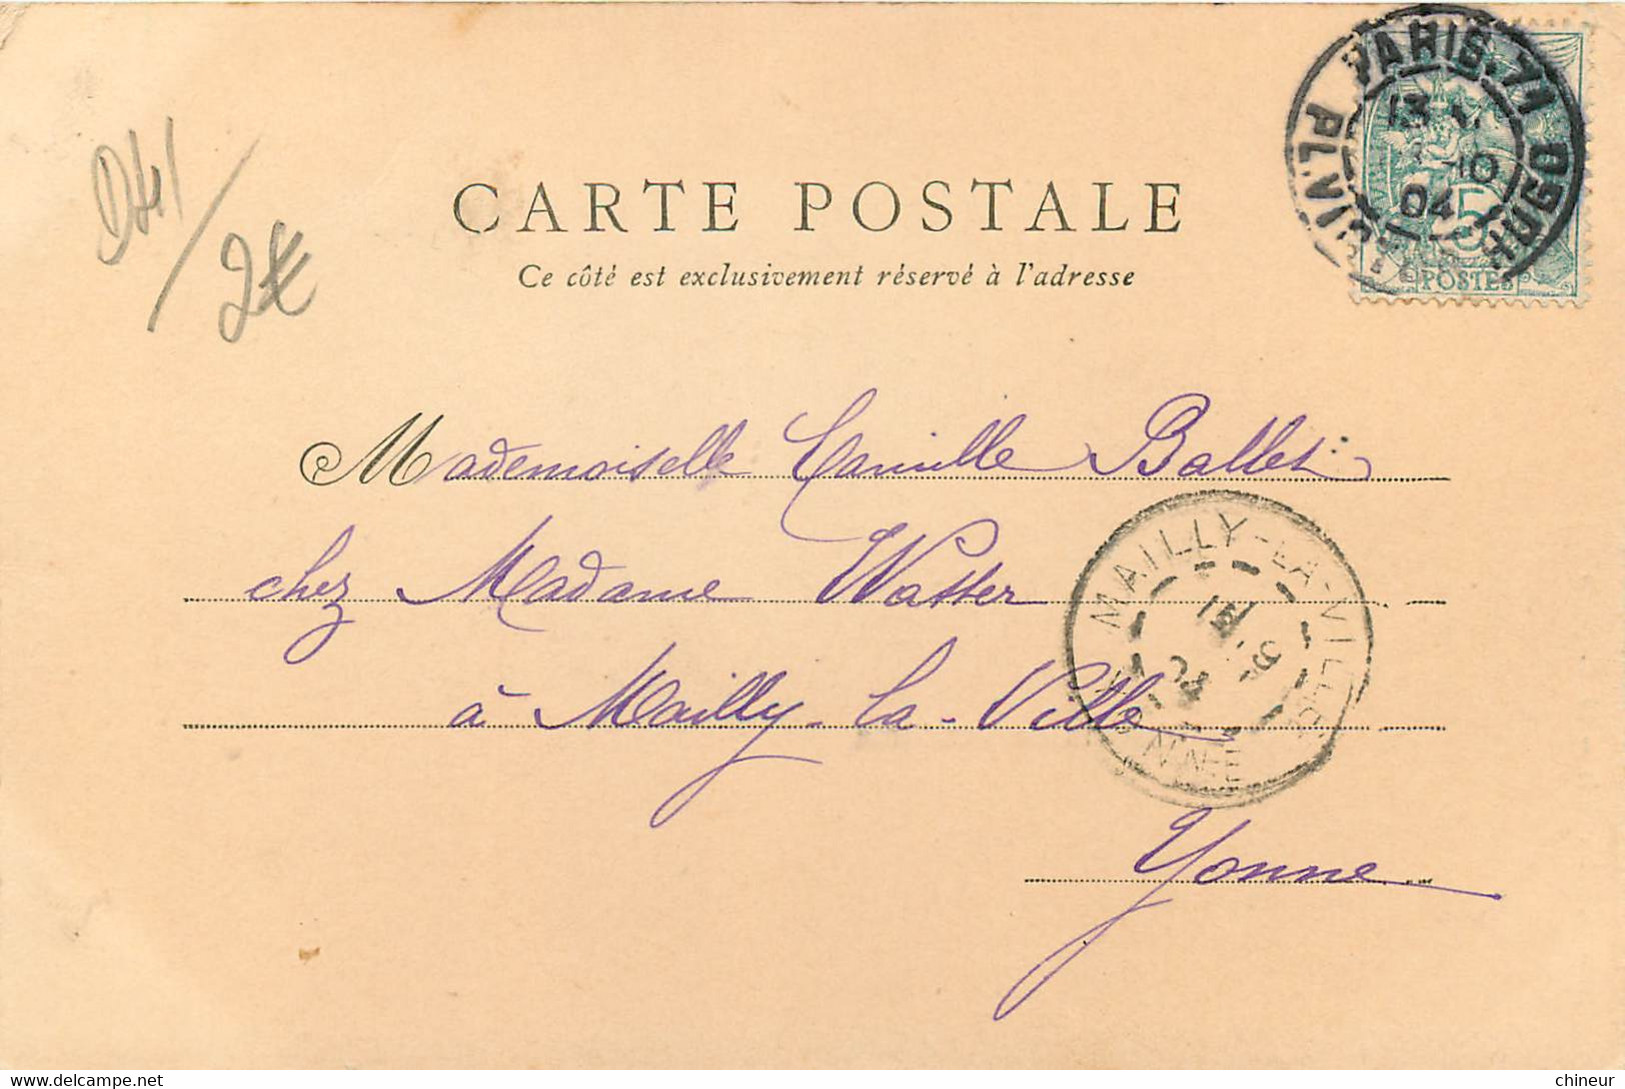 D41/
2€
CARTE POSTALE
Ce côté est exclusivement réservé à l'adresse
PARIS.71
PL. VICTOR HUGO
04
5
POSTES
Mademoiselle Camille Ballet
chez Madame Watter
à Mailly-la-Ville
Yonne
MAILLY-LA-VILLE
YONNE
delcampe.net
chineur